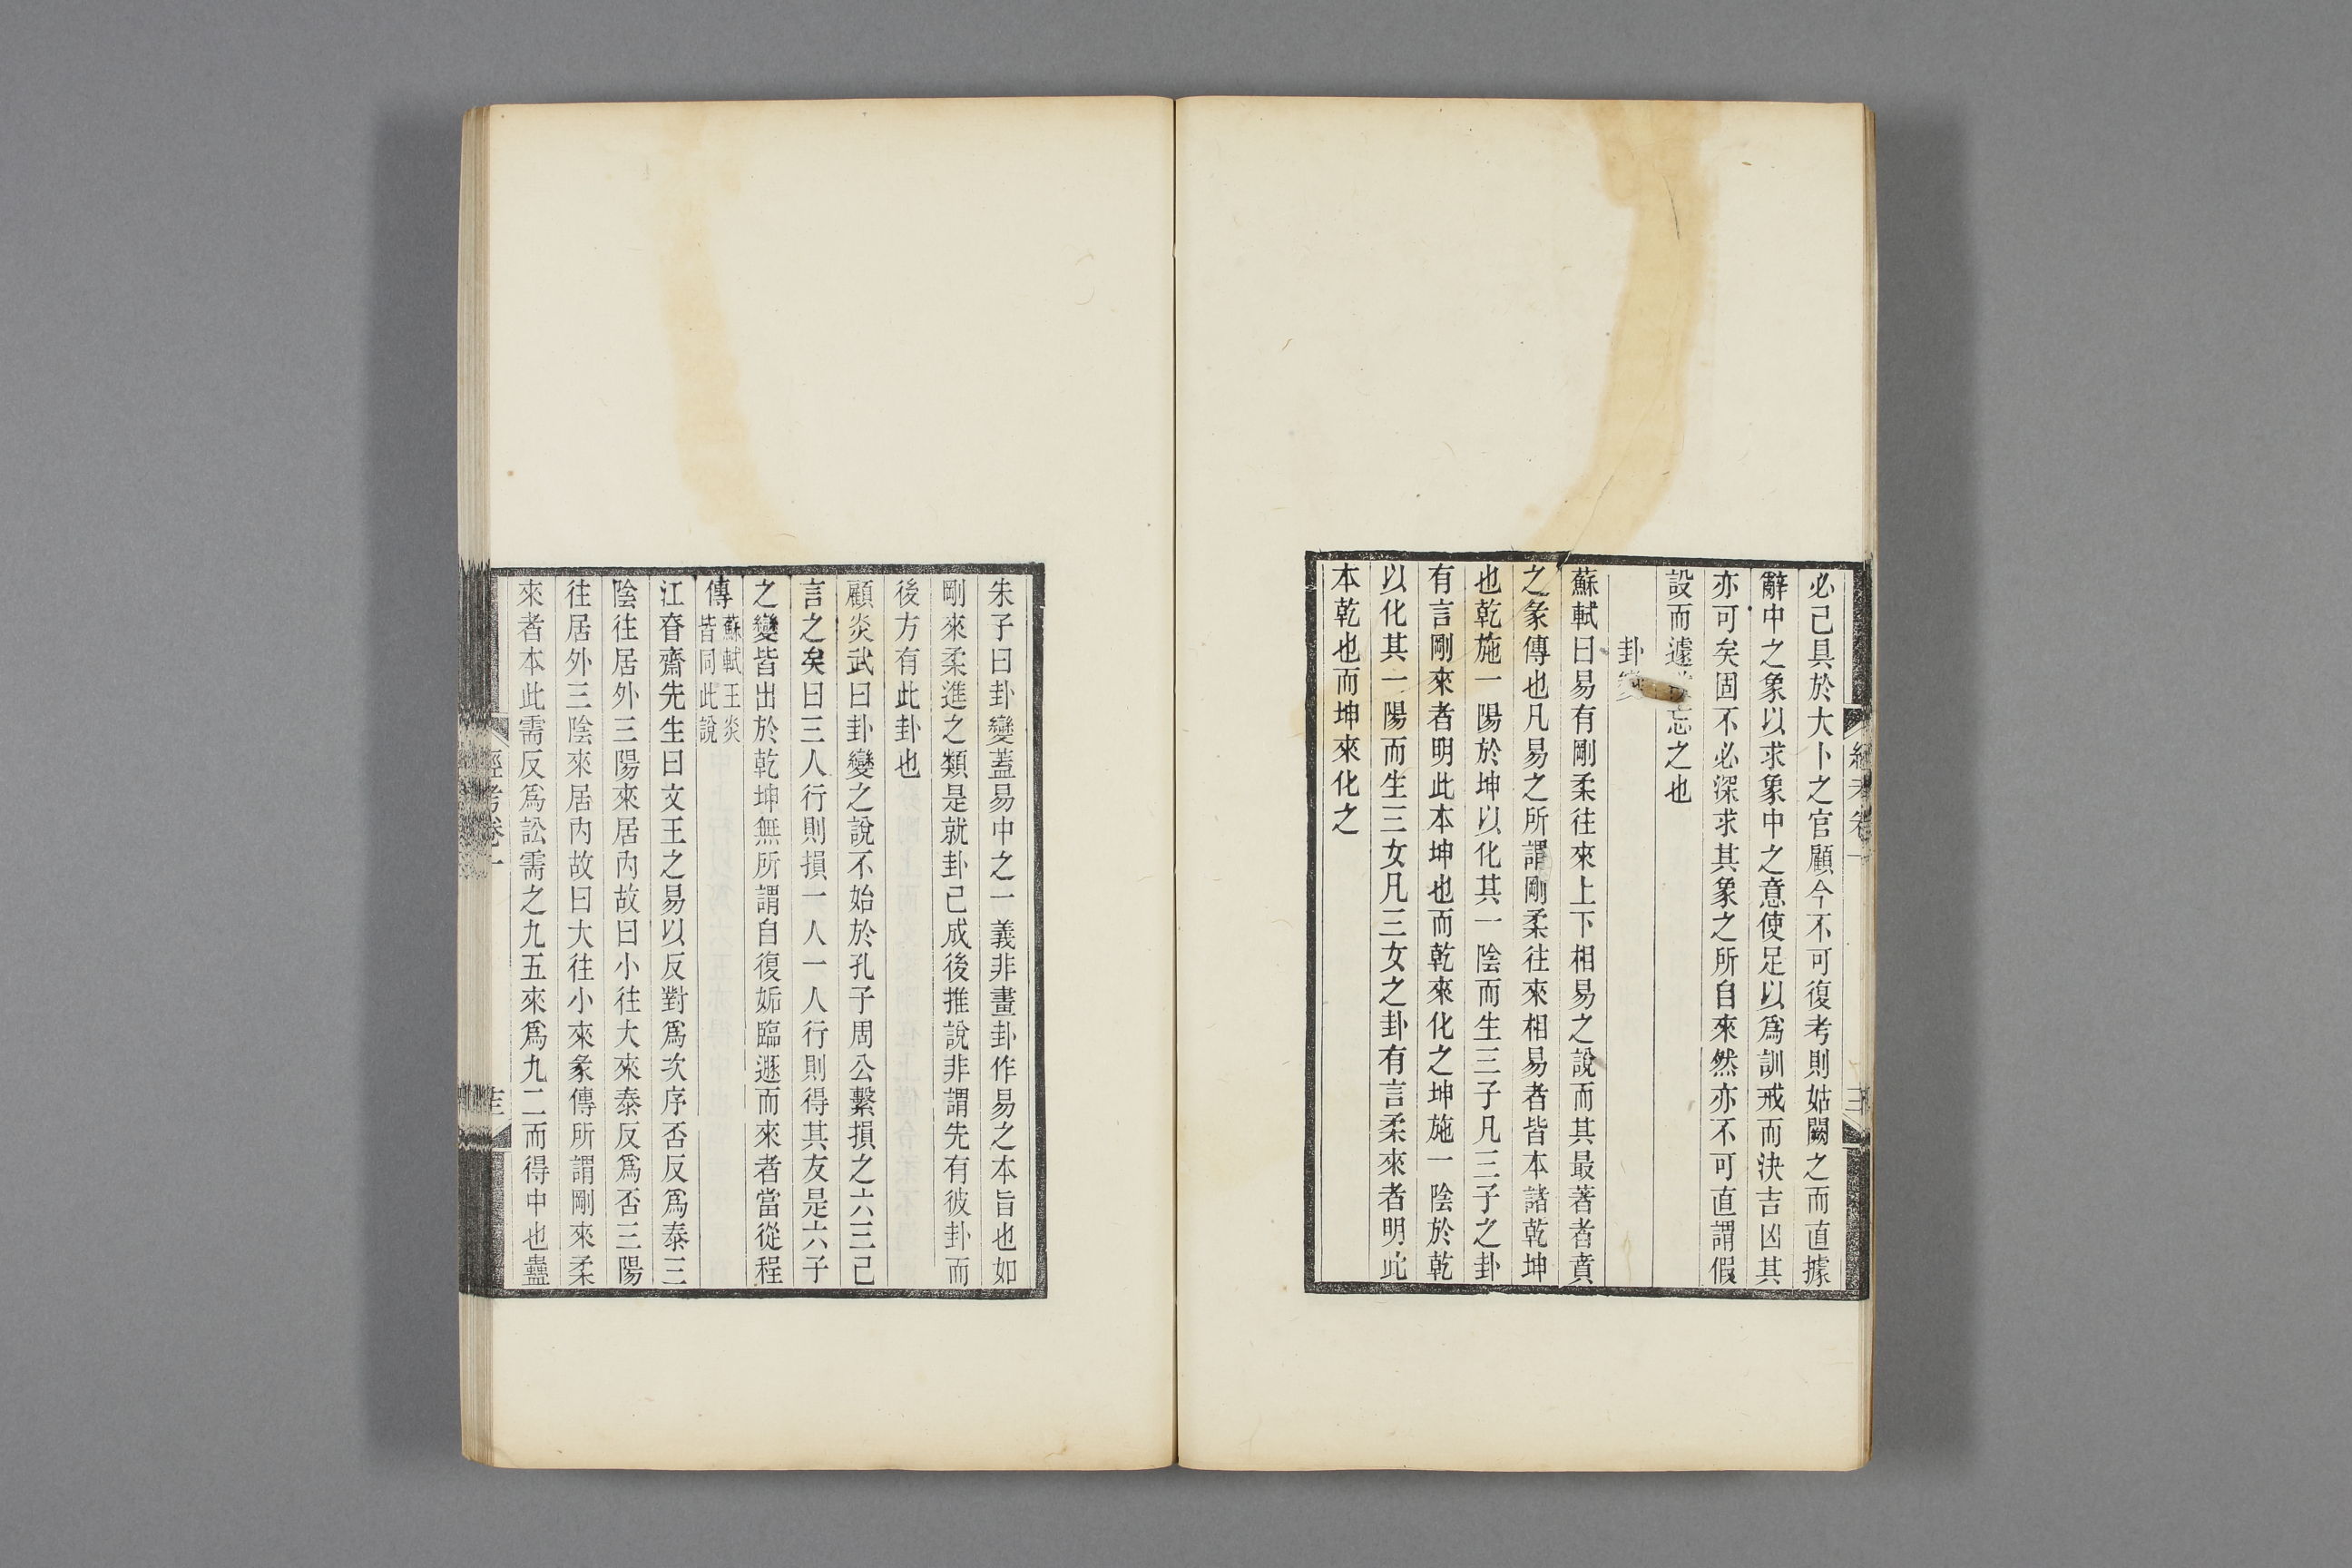 必已具於大卜之官顧今不可復考則姑闕之而直據
辭中之象以求象中之意使足以爲訓戒而決吉凶其
亦可矣固不必深求其象之所自來然亦不可直謂假
設而遽忘之也
卦變
蘇軾曰易有剛柔往來上下相易之說而其最著者賁
之彖傳也凡易之所謂剛柔往來相易者皆本諸乾坤
也乾施一陽於坤以化其一陰而生三子凡三子之卦
有言剛來者明此本坤也而乾來化之坤施一陰於乾
以化其一陽而生三女凡三女之卦有言柔來者明此
本乾也而坤來化之
朱子曰卦變蓋易中之一義非畫卦作易之本旨也如
剛來柔進之類是就卦已成後推說非謂先有彼卦而
後方有此卦也
顧炎武曰卦變之說不始於孔子周公繫損之六三已
言之矣曰三人行則損一人一人行則得其友是六子
之變皆出於乾坤無所謂自復姤臨遯而來者當從程
傳蘇軾王炎皆同此說
江眘齋先生曰文王之易以反對爲次序否反爲泰三
陰往居外三陽來居內故曰小往大來泰反爲否三陽
往居外三陰來居內故曰大往小來彖傳所謂剛來柔
來者本此需反爲訟需之九五來爲九二而得中也蠱
經考卷一